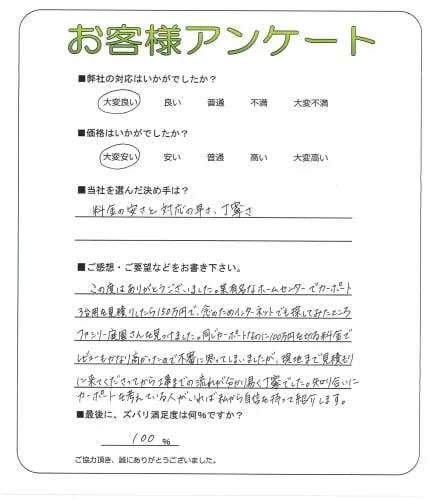 お客様アンケート
■弊社の対応はいかがでしたか?
大変良い 良い 普通 不満 大変不満
■価格はいかがでしたか?
大変安い 安い 普通 高い 大変高い
■当社を選んだ決め手は?
料金の安さと対応の早さ、丁寧さ
■ご感想・ご要望などをお書き下さい。
この度はありがとうございました。某有名なホームセンターでカーポート
3台用を見積りしたら150万円で、念のためインターネットでも探してみたところ
ファミリー庭園さんを見つけました。同じカーポートなのに100万円をきる料金で
レビューもかなり高かったので不審に思ってしまいましたが、現地まで見積もり
に来てくださってから工事までの流れが分かり易く丁寧でした。知り合いに
カーポートを考えている人がいれば私から自信を持って紹介します。
■最後に、ズバリ満足度は何%ですか?
100 %
ご協力頂き、誠にありがとうございました。